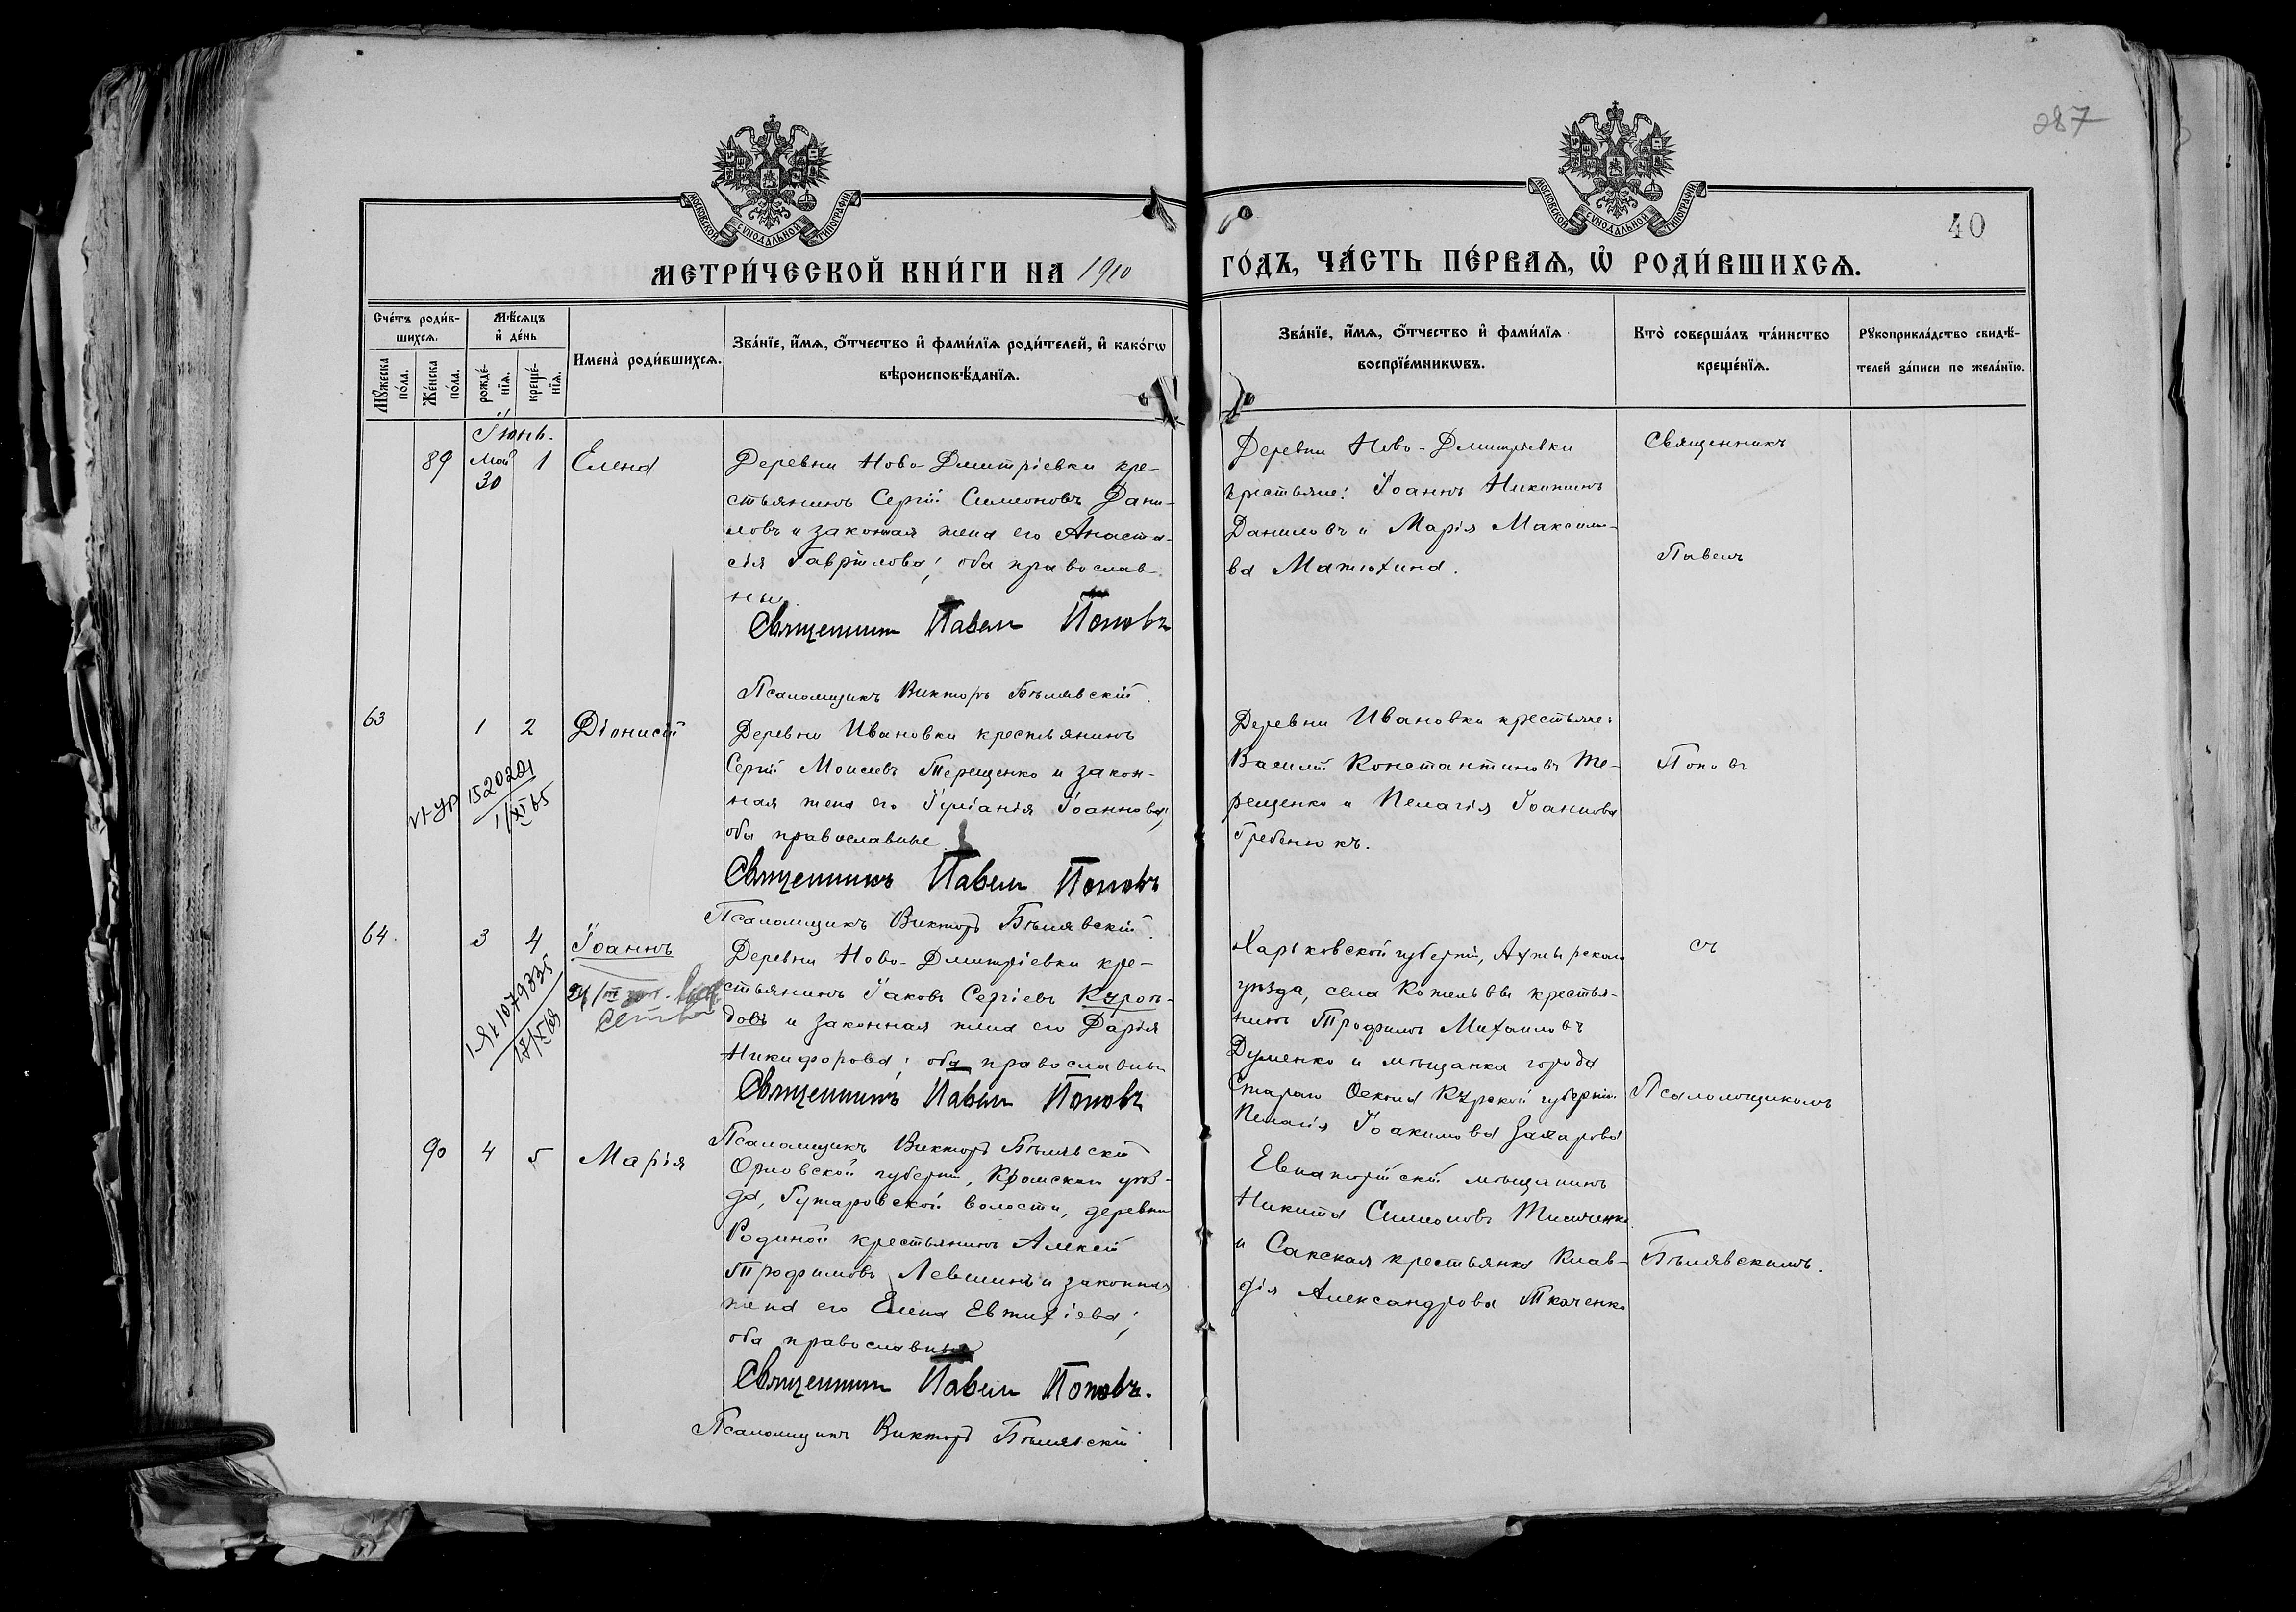 287
40
МОСКОВСКОЙ СѴНОДАЛЬНОЙ ТИПОГРАФІИ
МОСКОВСКОЙ СѴНОДАЛЬНОЙ ТИПОГРАФІИ
МЕТРИ́ЧЕСКОЙ КНИ́ГИ НА 1910
ГО́ДЪ, ЧА́СТЬ ПЕ́РВАѦ, Ѡ҆ РОДИ́ВШИХСѦ.
Сче́тъ роди́в-
шихсѧ.
Мꙋ́жеска
по́ла.
Же́нска
по́ла.
Мѣ́сѧцъ
и҆ де́нь
рожде́-
нїѧ.
креще́-
нїѧ.
Имена̀ роди́вшихсѧ.
Зва́нїе, и҆́мѧ, ѻ҆́тчество и҆ фами́лїѧ роди́телей, и҆ како́гѡ
вѣроисповѣ́данїѧ.
Зва́нїе, и҆́мѧ, ѻ҆́тчество и҆ фами́лїѧ
воспрїе́мникѡвъ.
Кто̀ соверша́лъ та́инство
креще́нїѧ.
Рꙋкоприкла́дство свидѣ́-
телей за́писи по жела́нїю.
Іюнь.
89
Май
30
1
Елена
Деревни Ново-Дмитріевки кре-
стьянинъ Сергій Симеоновъ Дани-
ловъ и законная жена его Анаста-
сія Гавріилова; оба православ-
ны
Священникъ Павелъ Поповъ
Псаломщикъ Викторъ Бѣлявскій.
Деревни Ново-Дмитріевки
крестьяне: Іоаннъ Никитинъ
Даниловъ и Марія Максимо-
ва Матюхина.
Священникъ
Павелъ
63
1
2
Діонисій
1520204
1/XI 65
Деревни Ивановки крестьянинъ
Сергій Моисеевъ Терещенко и закон-
ная жена его Іуліанія Іоаннова;
оба православные
Священникъ Павелъ Поповъ
Псаломщикъ Викторъ Бѣлявскій.
Деревни Ивановки крестьяне:
Василій Константиновъ Те-
рещенко и Пелагія Іоаннова
Гребенюкъ.
Поповъ
64.
3
4
Іоаннъ
Деревни Ново-Дмитріевки кре-
стьянинъ Іаковъ Сергіевъ Куроп-
довъ и законная жена его Дарія
Никифорова; оба православны
Священникъ Павелъ Поповъ
Псаломщикъ Викторъ Бѣлявскій
Харьковской губерніи, Ахтырскаго
уѣзда, села Котельвы крестья-
нинъ Трофимъ Михаиловъ
Думенко и мѣщанка города
Стараго Оскола Курской губерніи
Пелагія Іоакимова Захарова
съ
Псаломщикомъ
90
4
5
Марія
Орловской губерніи, Кромскаго уѣз-
да, Гутаровской волости, деревни
Родиной крестьянинъ Алексій
Трофимовъ Левшинъ и законная
жена его Елена Евтихіева;
оба православныя
Священникъ Павелъ Поповъ.
Псаломщикъ Викторъ Бѣлявскій
Евпаторійскій мѣщанинъ
Никита Симеоновъ Тимченко
и Сакская крестьянка Клав-
дія Александрова Ткаченко
Бѣлявскимъ.